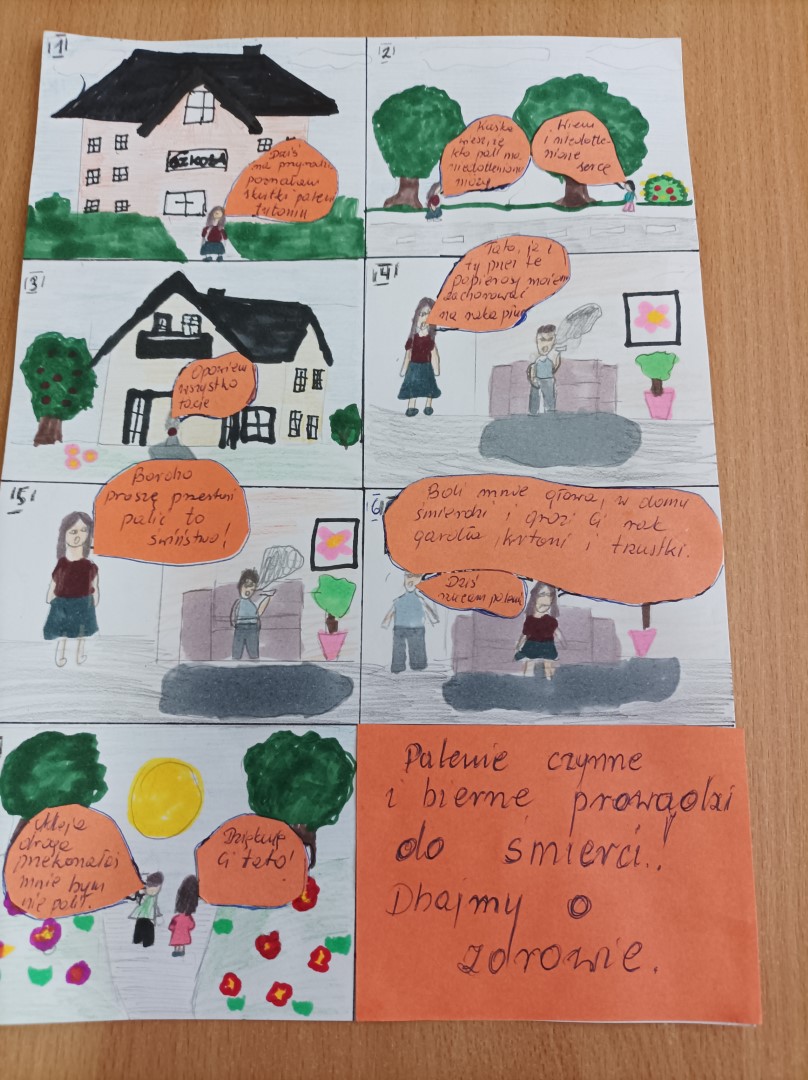 1
SZKOŁA
Dziś
na przyrodzie
poznałam
skutki palenia
tytoniu
2
Kaśka
wiesz, że
kto pali ma
niedotleniony
mózg
Wiem
i niedotle-
nione
serce
3
Opowiem
wszystko
tacie
4
Tato, ja i
ty przez te
papierosy możemy
zachorować
na raka płuc
5
Bardzo
proszę przestań
palić to
świństwo!
6
Boli mnie głowa, w domu
śmierdzi i grozi Ci rak
gardła, krtani i trzustki.
Dziś
rzucam palenie
Moja
droga
przekonałaś
mnie bym
nie palił.
Dziękuję
Ci tato!
Palenie czynne
i bierne prowadzi
do śmierci!
Dbajmy o
zdrowie.